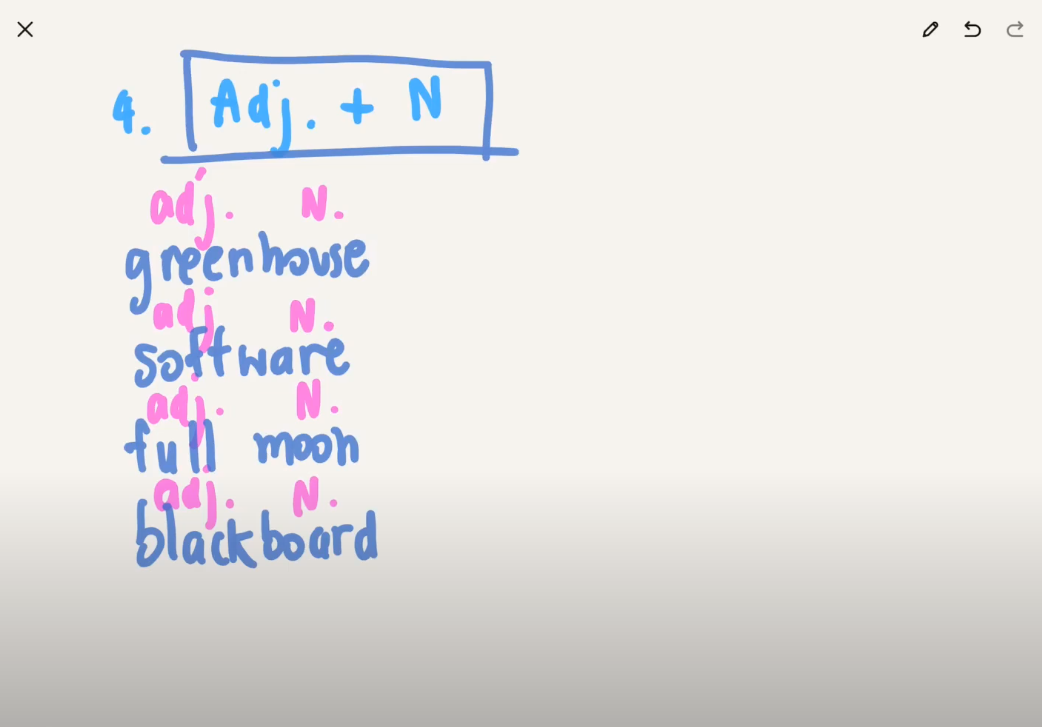 4. Adj. + N
adj. N.
greenhouse
adj N.
software
adj. N.
full moon
adj. N.
blackboard